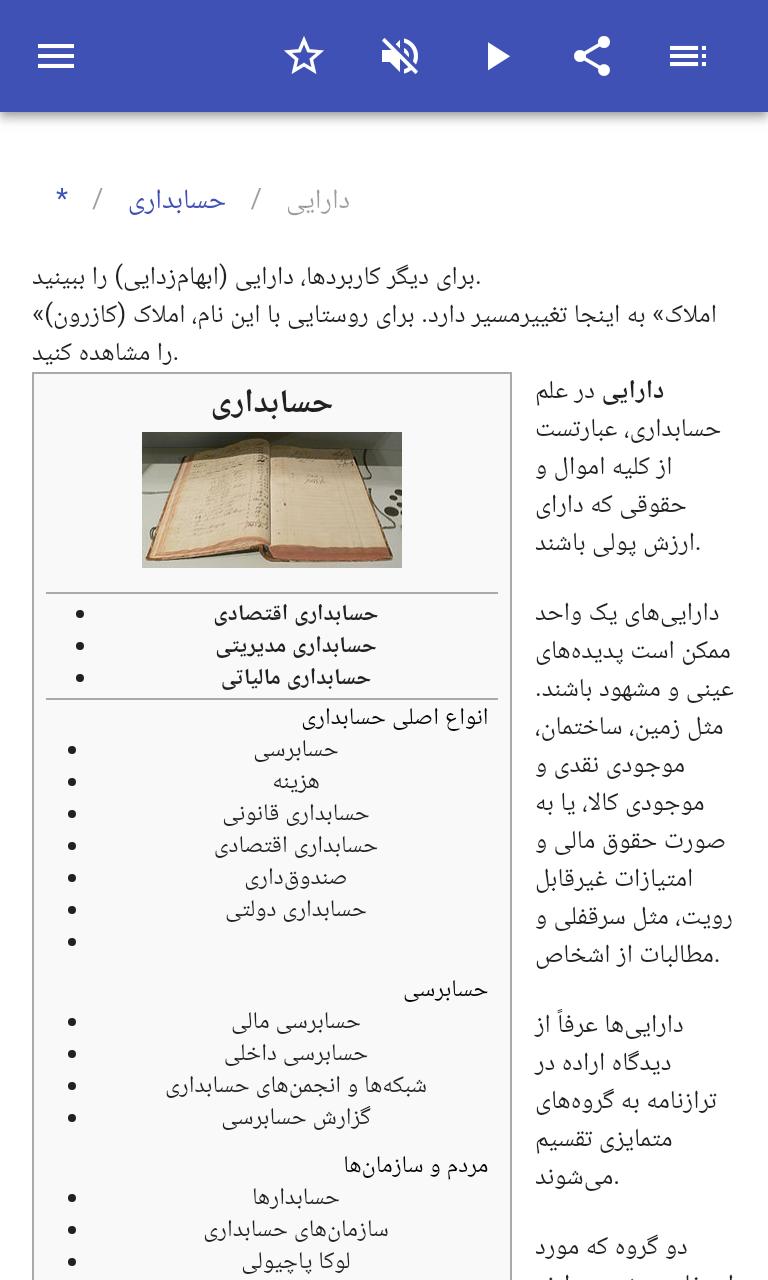 * / حسابداری / دارایی
برای دیگر کاربردها، دارایی (ابهام‌زدایی) را ببینید.
«املاک» به اینجا تغییرمسیر دارد. برای روستایی با این نام، املاک (کازرون)
را مشاهده کنید.
دارایی در علم
حسابداری، عبارتست
از کلیه اموال و
حقوقی که دارای
ارزش پولی باشند.
دارایی‌های یک واحد
ممکن است پدیده‌های
عینی و مشهود باشند.
مثل زمین، ساختمان،
موجودی نقدی و
موجودی کالا، یا به
صورت حقوق مالی و
امتیازات غیرقابل
رویت، مثل سرقفلی و
مطالبات از اشخاص.
دارایی‌ها عرفاً از
دیدگاه اراده در
ترازنامه به گروه‌های
متمایزی تقسیم
می‌شوند.
دو گروه که مورد
حسابداری
• حسابداری اقتصادی
• حسابداری مدیریتی
• حسابداری مالیاتی
انواع اصلی حسابداری
• حسابرسی
• هزینه
• حسابداری قانونی
• حسابداری اقتصادی
• صندوق‌داری
• حسابداری دولتی
•
حسابرسی
• حسابرسی مالی
• حسابرسی داخلی
• شبکه‌ها و انجمن‌های حسابداری
• گزارش حسابرسی
مردم و سازمان‌ها
• حسابدارها
• سازمان‌های حسابداری
• لوکا پاچیولی